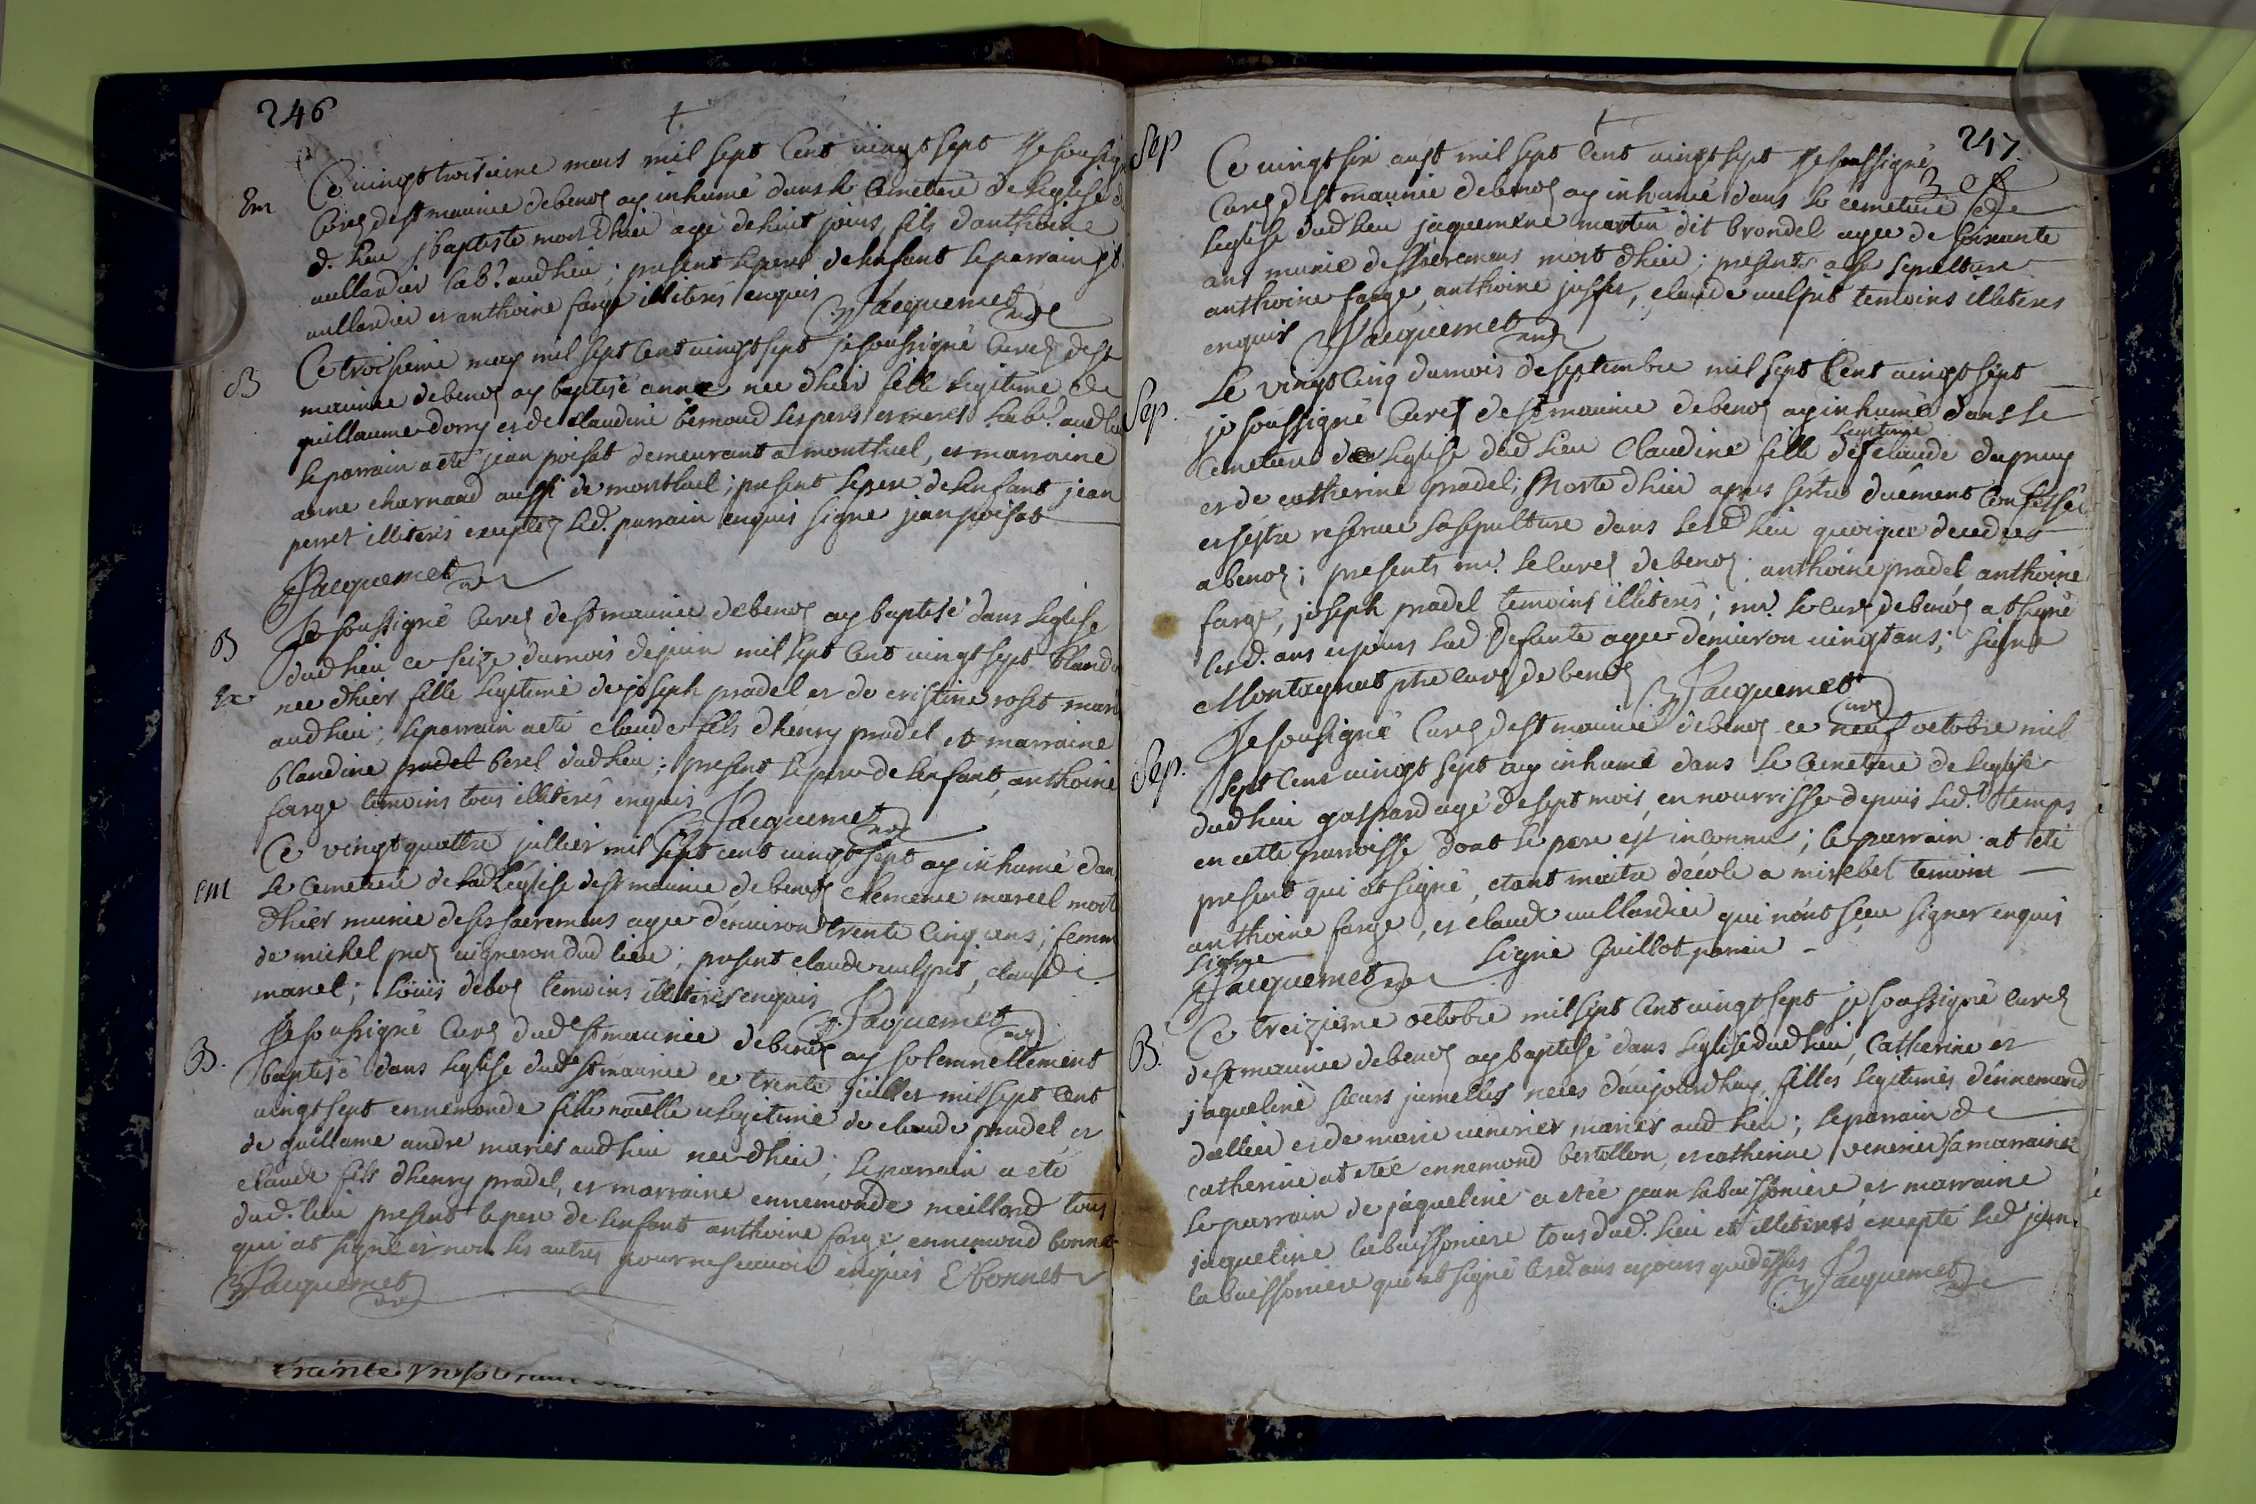 246
+
Ce vingt troisieme mars mil sept Cent vingt sept Je soussigné
Em
Curé de st maurice de benos ay inhumé dans le Cemetiere de leglise du
d. lieu jbaptiste mort dhier agé de huit jours, fils danthoine
uullardier lab.r aud lieu; present le pere de lenfant le parrain jbt
uullardier et anthoine farge illiteres enquis Jacquemet curé
B
Ce troisieme may mil sept Cent vingt sept je soussigné Curé de st
maurice de benos ay baptisé anne nee dhier fille legitime de
guillaume dorry et de Claudine bernoud ses pere et mere lab.r aud lieu
le parrain a eté jean poisat demeurant a montluel, et marraine
anne charnaud aussi de montluel; present le pere de lenfant jean
perret illiterés exceptez led. parrain enquis signe jean poisat
Jacquemet curé
B
Je soussigné Curé de st maurice de benos ay baptisé dans leglise
dud lieu ce seize du mois de juin mil sept Cent vingt sept bland
nee dhier fille legitime de joseph pradel et de cristine roset mar
aud lieu; le parrain a eté claude fils dhenry pradel et marraine
blandine pradel berel dud lieu; present le pere de lenfant, anthoine
farge temoins tous illiterés enquis Jacquemet curé
Ce vingt quattre juillier mil sept cent vingt sept ay inhumé dan
ent
le cemetiere de lad leglise de st maurice de benos Clemence marcel mort
dhier munie de ses sacremens agee denuiron trente Cinq ans; femm
de michel vigneron dud lieu; present claude uulpit, claude
manel; Loüis debos temoins illiterés enquis Jacquemet curé
B.
Je soussigné Curé dud st maurice de benos ay solemnellement
baptisé dans leglise dud st maurice ce trente juillet mil sept Cent
vingt sept ennemonde fille naturelle et legitime de claude pradel, et
de guillame andre mariés aud lieu nee dhier; le parrain a eté
claude fils dhenry pradel, et marraine ennemonde meilland tous
dud. lieu present le pere de lenfant anthoine farge ennemond bonnet
qui at signé et non les autres pour ne scauoir enquis Ebonnet
Jacquemet curé
trente
247.
+
Sep
Ce vingt six aust mil sept Cent vingt sept Je soussigné
Curé de st maurice de benos ay inhumé dans le cemetiere de
leglise dud lieu jaquemene martin dit brondel agee de soixante
ans munie de ses sacremens mort dhier; presents a sa sepulture
anthoine farge, anthoine jusset, claude uulpit temoins illiteres
enquis Jacquemet curé
Sep.
Le vingt Cinq du mois de septembre mil sept Cent vingt sept
je soussigné Curé de st maurice de benos ay inhumé dans le
Cemetiere de leglise dud lieu Claudine fille legitime de claude dupuy
et de catherine pradel; Morte dhier apres sestre duement Confessée
et sestre reserue sa sepulture dans led lieu quoique decedee
a benos; presents mr. le Curé de benos; anthoine pradel anthoine
farge, joseph pradel temoins illiterés; mr. le Curé de benos at signé
lesd. ans et jours lad defunte agee denuiron vingt ans; signé
Montagnat ptre curé de benos Jacquemet curé
Sep.
Je soussigné Curé de st maurice de benos ce neuf octobre mil
sept Cent vingt sept ay inhumé dans le Cemetiere de leglise
dud lieu gaspard agé de sept mois, en nourrisse depuis led. temps
en cette parroisse dont le pere est inconnu; le parrain at eté
present qui at signé, etant maitre decole a mirebel temoins
anthoine farge, et claude uullardier qui nont sceu signer enquis
signe
Jacquemet curé signé Guillot parrain
B.
Ce treizieme octobre mil sept Cent vingt sept je soussigné curé
de st maurice de benos ay baptisé dans leglise dud lieu, Catherine et
jaqueline sœurs jumelles neés daujourdhuy, filles legitimes dennemond
dallier et de marie uenerier mariés aud lieu; le parrain de
catherine at eté ennemond bertollon, et catherine venerier sa marraine
le parrain de jaqueline a etée jean labuissoniere et marraine
jaqueline labuissoniere tous dud. lieu et illiterés excepté led jean.
labuissoniere qui at signé lesd. ans et jours que dessus Jacquemet curé